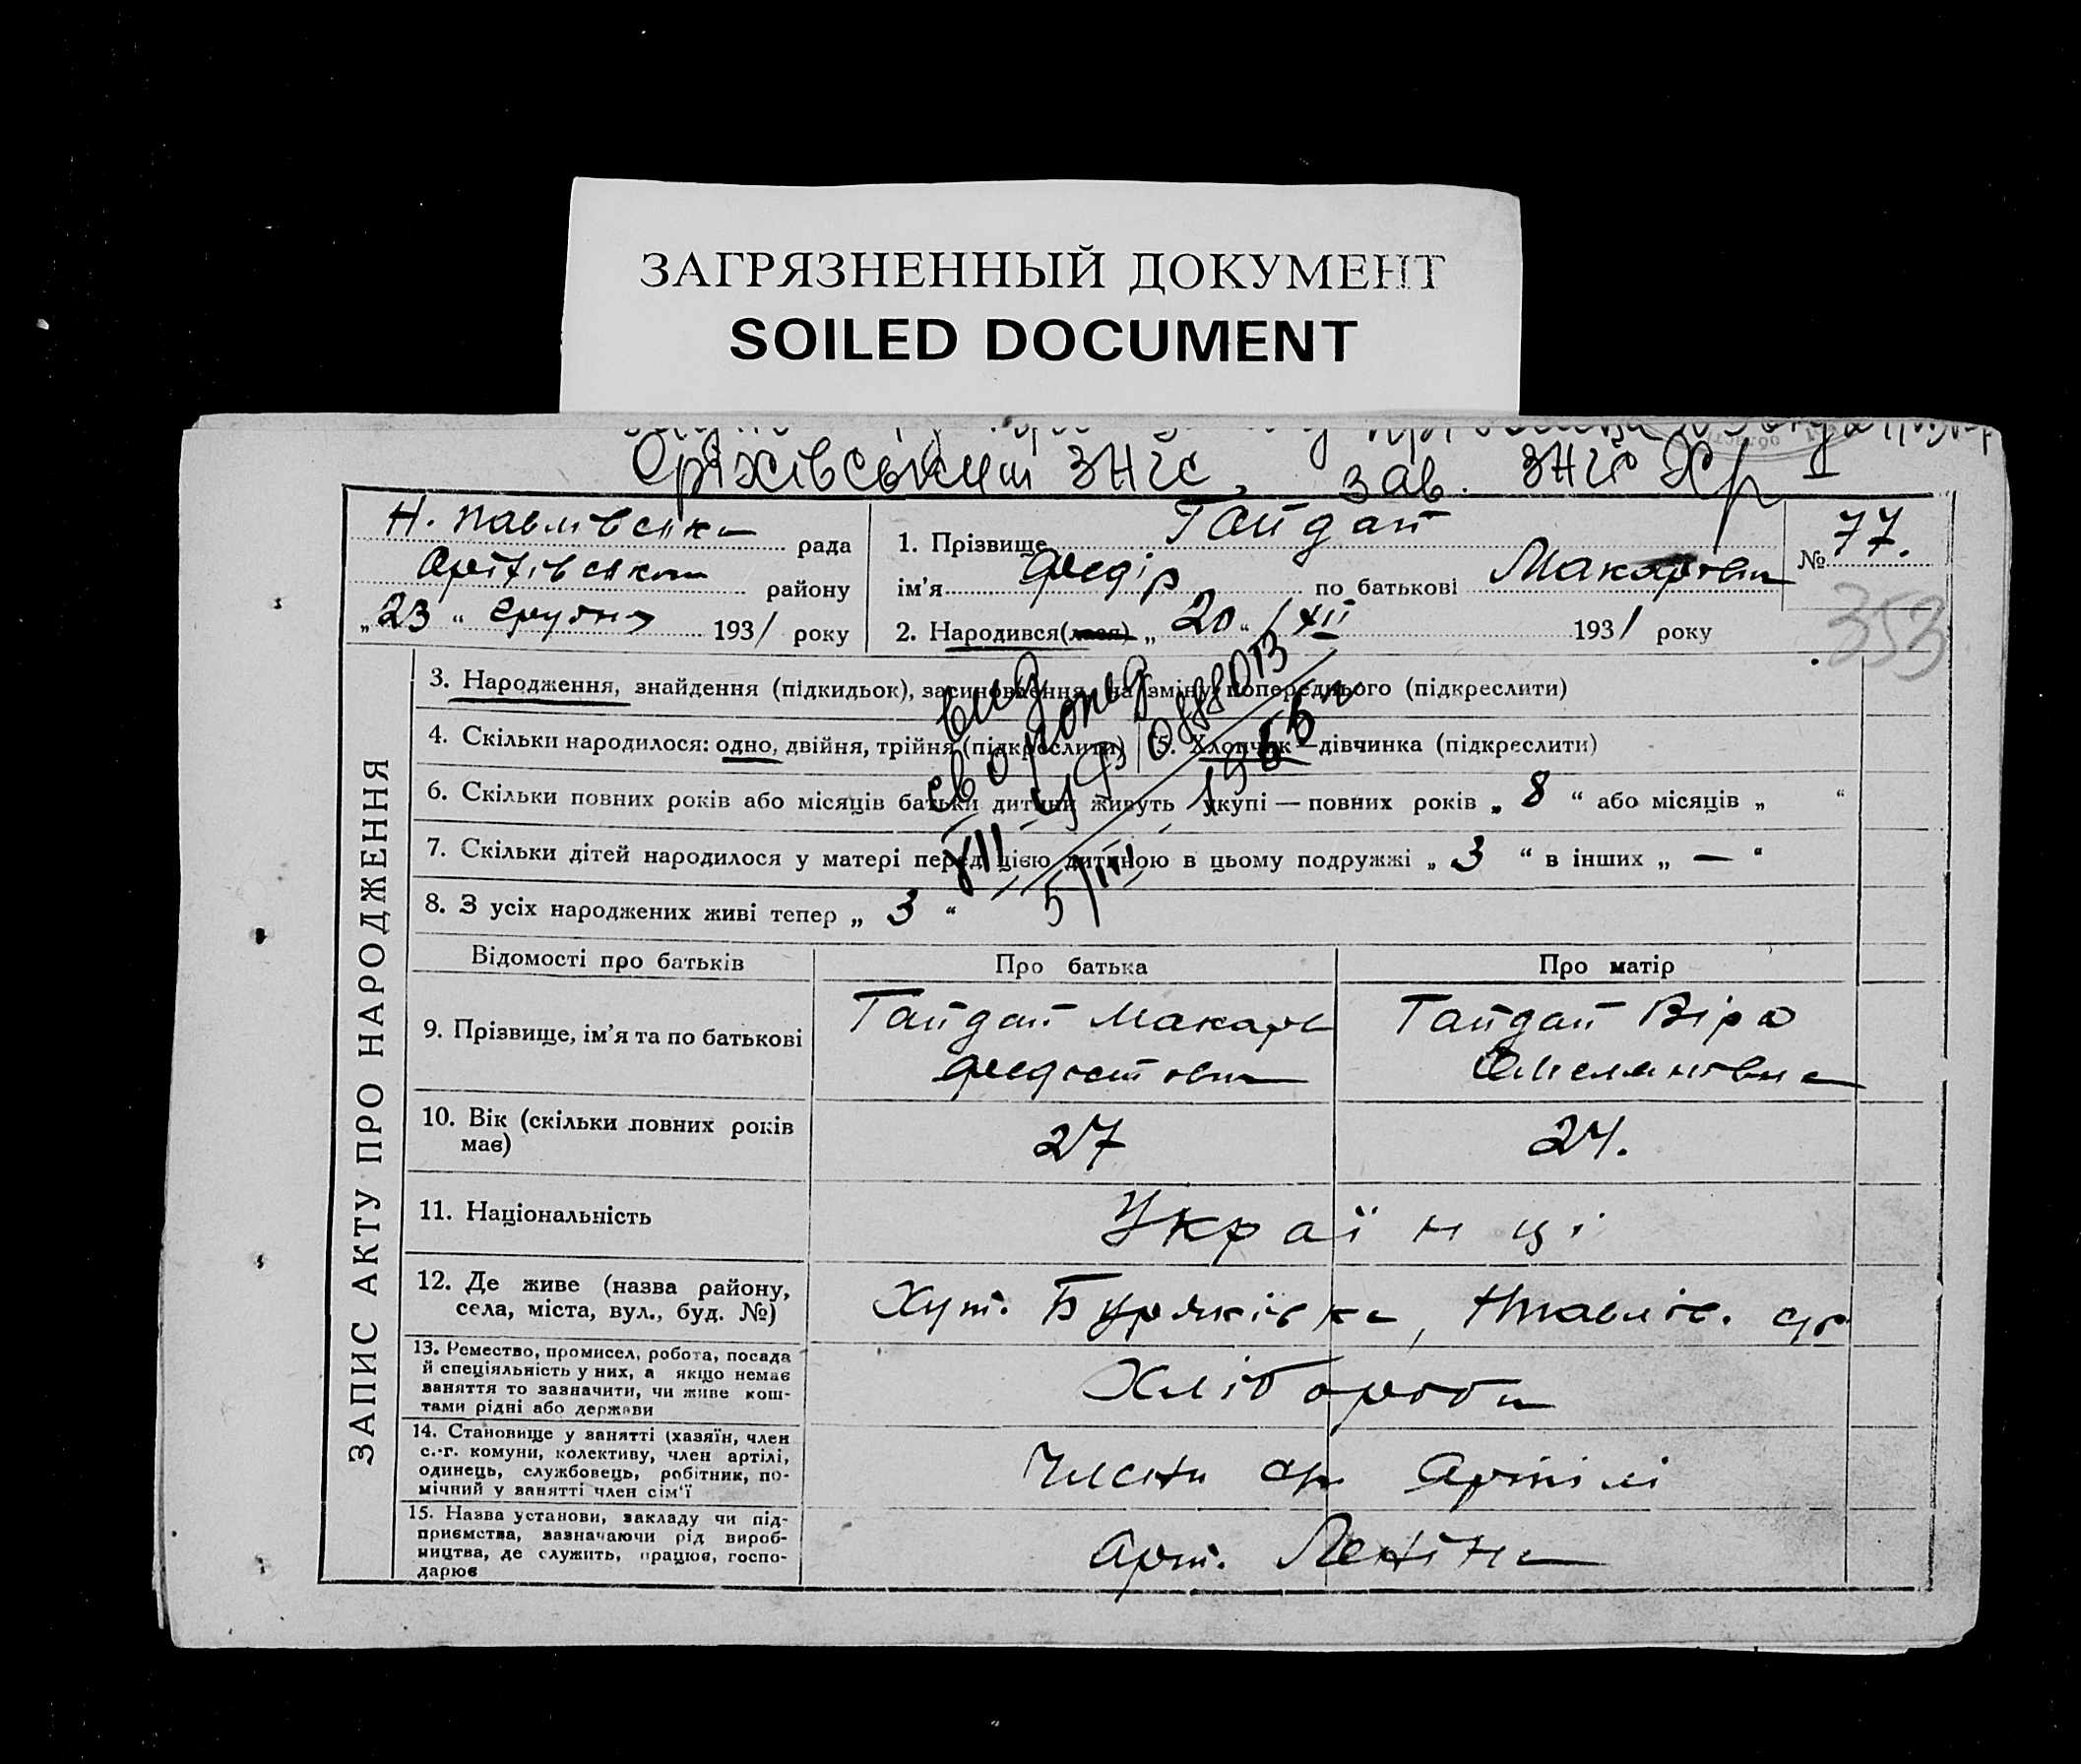 ЗАГРЯЗНЕННЫЙ ДОКУМЕНТ
SOILED DOCUMENT
Оріхівський ЗАГС, зав. ЗАГС
Н. Павлівська рада
Оріхівського району
„23“ грудня 1931 року
1. Прізвище Гайдай
ім’я Федір по батькові Макарович
2. Народився(лася) „20“ / XII 1931 року
№ 77.
353
ЗАПИС АКТУ ПРО НАРОДЖЕННЯ
3. Народження, знайдення (підкидьок), засиновлення, на зміну попереднього (підкреслити)
4. Скільки народилося: одно, двійня, трійня (підкреслити) 5. Хлопчик—дівчинка (підкреслити)
6. Скільки повних років або місяців батьки дитини живуть укупі — повних років „ 8 “ або місяців „ “
7. Скільки дітей народилося у матері перед цією дитиною в цьому подружжі „ 3 “ в інших „ — “
8. З усіх народжених живі тепер „ 3 “
Відомості про батьків Про батька Про матір
9. Прізвище, ім’я та по батькові
Гайдай Макар
Федостович
Гайдай Віра
Омелянівна
10. Вік (скільки повних років
має)
27
24.
11. Національність
Українці
12. Де живе (назва району,
села, міста, вул., буд. №)
Хут. Буряківка, Нпавлів. с/р
13. Ремество, промисел, робота, посада
й спеціяльність у них, а якщо немає
заняття то зазначити, чи живе кош-
тами рідні або держави
Хлібороби
14. Становище у занятті (хазяїн, член
с.-г. комуни, колективу, член артілі,
одинець, службовець, робітник, по-
мічний у занятті член сім’ї
Члени с/г Артілі
15. Назва установи, закладу чи під-
приємства, зазначаючи рід вироб-
ництва, де служить, працює, госпо-
дарює
Арт. Леніна